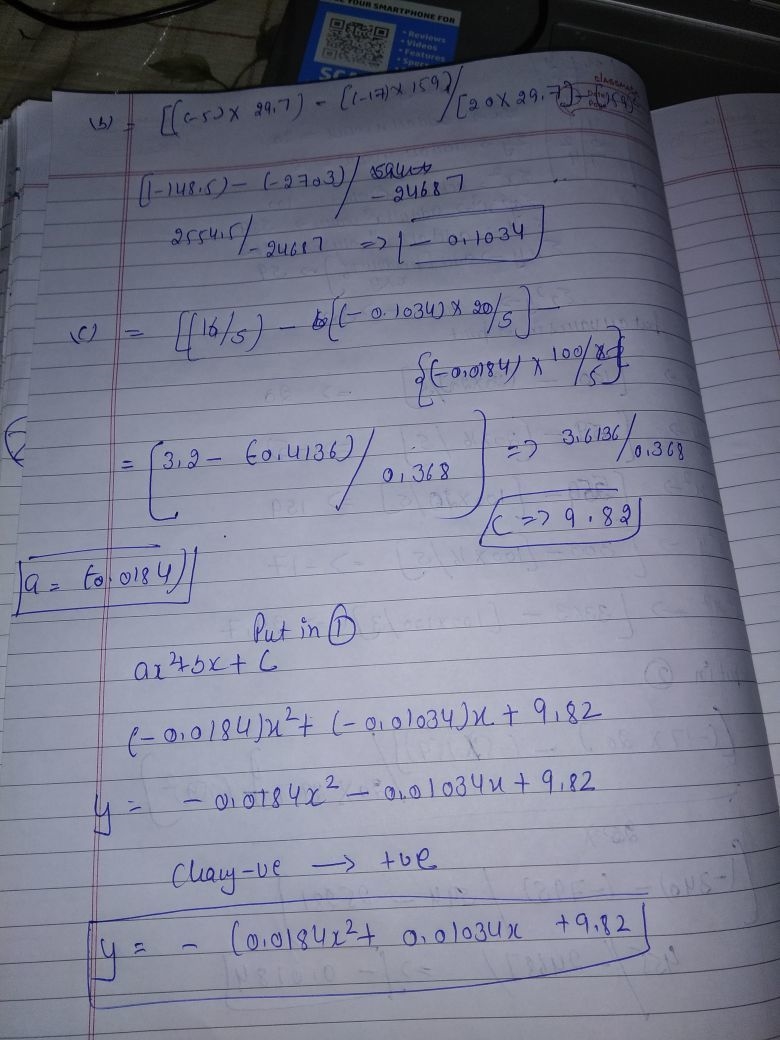 YOUR SMARTPHONE FOR
• Reviews
• Videos
• Features
SCA
CLASSMATE
Date
Page
(b) = [[(-5) x 29.7] - [(-17) x 159] / [20 x 29.7] - 159²
[(-148.5) - (-2703) /
- 24687
2554.5 / -24687 => - 0.1034
(c) = [[16/5) - [(-0.1034) x 20/5] -
{(-0.0184) x 100/5}
= [3.2 - (-0.4136) / 0.368] => 3.6136/0.368
C => 9.82
a = (-0.0184)
Put in ①
ax²+bx+C
(-0.0184)x² + (-0.01034)x + 9.82
y = - 0.0184x² - 0.01034x + 9.82
Chang -ve → +ve
y = - (0.0184x² + 0.01034x + 9.82